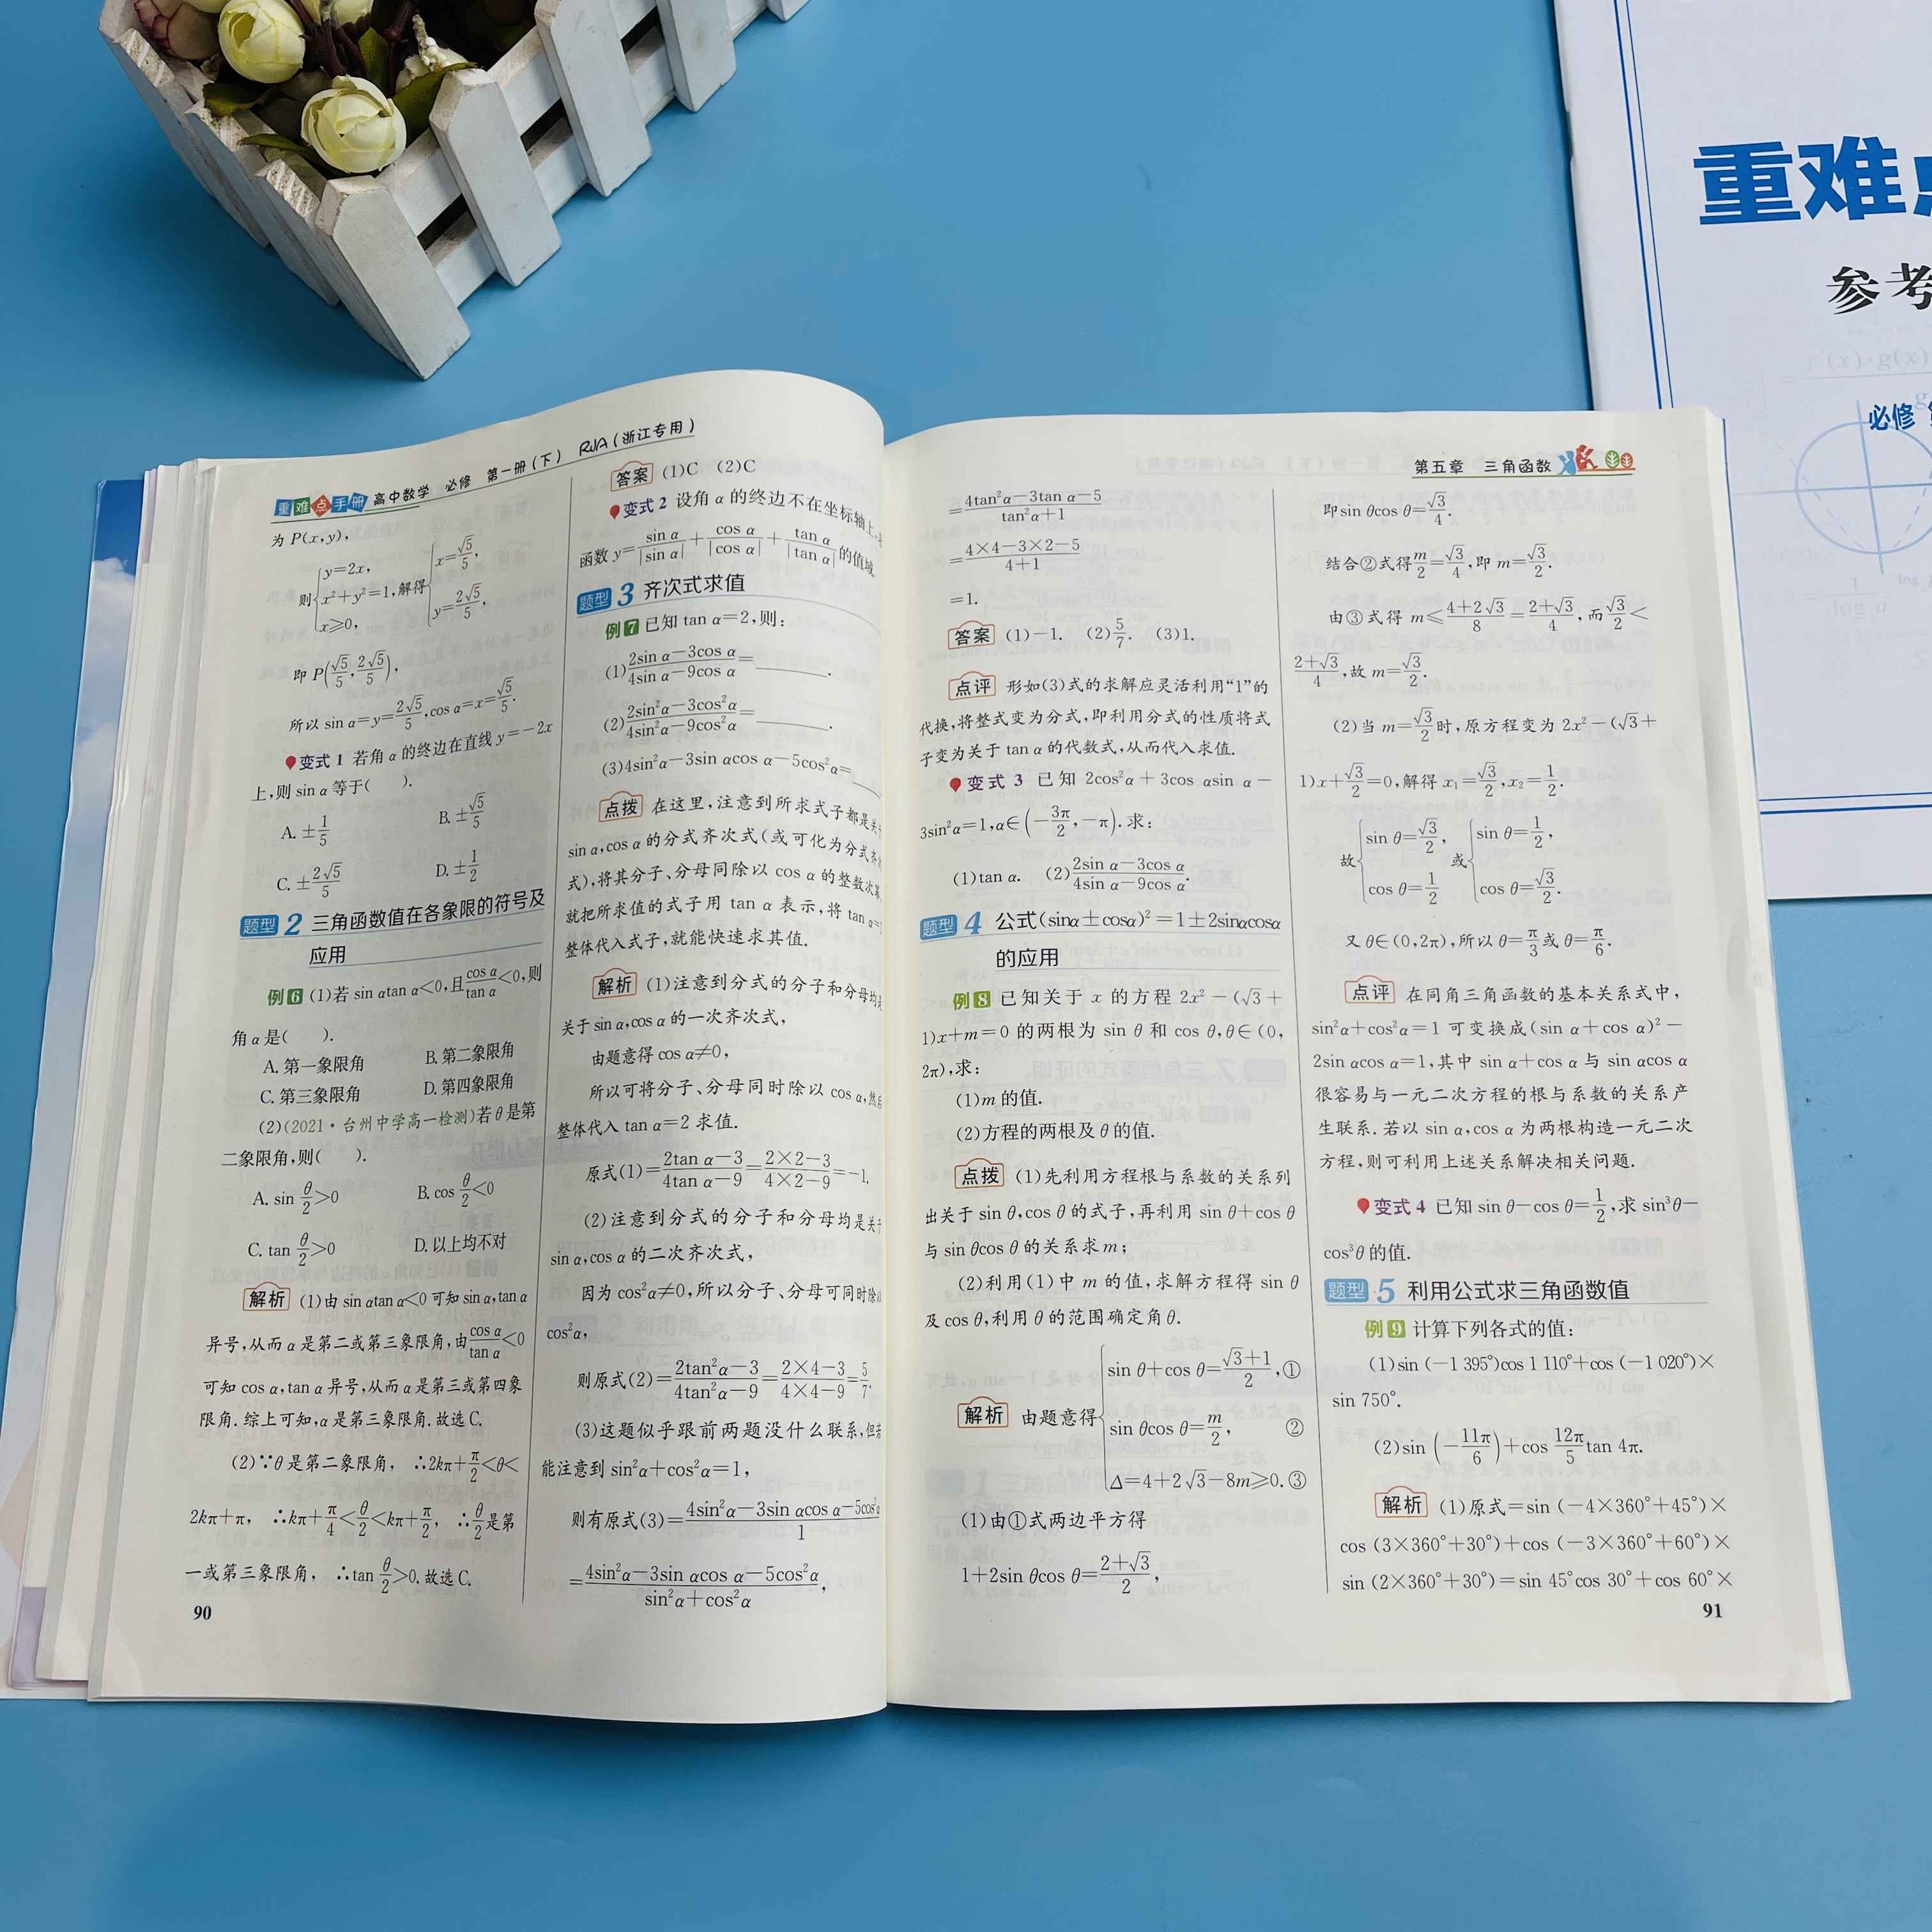 重难点手册 高中数学 必修 第一册(下) RJA(浙江专用)
为 P(x,y),
则{y=2x, x²+y²=1, x≥0, 解得{x=√5/5, y=2√5/5,
即 P(√5/5, 2√5/5),
所以 sin α=y=2√5/5, cos α=x=√5/5.
变式 1 若角 α 的终边在直线 y=-2x
上,则 sin α 等于( ).
A. ±1/5 B. ±√5/5
C. ±2√5/5 D. ±1/2
题型 2 三角函数值在各象限的符号及
应用
例 6 (1)若 sin αtan α<0,且cos α/tan α<0,则
角 α 是( ).
A. 第一象限角 B. 第二象限角
C. 第三象限角 D. 第四象限角
(2)(2021·台州中学高一检测)若 θ 是第
二象限角,则( ).
A. sin θ/2>0 B. cos θ/2<0
C. tan θ/2>0 D. 以上均不对
解析 (1)由 sin αtan α<0 可知 sin α,tan α
异号,从而 α 是第二或第三象限角,由cos α/tan α<0
可知 cos α,tan α 异号,从而 α 是第三或第四象
限角. 综上可知,α 是第三象限角. 故选 C.
(2)∵θ 是第二象限角, ∴2kπ+π/2<θ<
2kπ+π, ∴kπ+π/4<θ/2<kπ+π/2, ∴θ/2是第
一或第三象限角, ∴tan θ/2>0. 故选 C.
90
答案 (1)C (2)C
变式 2 设角 α 的终边不在坐标轴上,
函数 y=sin α/|sin α|+cos α/|cos α|+tan α/|tan α|的值域
题型 3 齐次式求值
例 7 已知 tan α=2,则:
(1)(2sin α-3cos α)/(4sin α-9cos α)=______.
(2)(2sin²α-3cos²α)/(4sin²α-9cos²α)=______.
(3)4sin²α-3sin αcos α-5cos²α=___
点拨 在这里,注意到所求式子都是关
sin α,cos α 的分式齐次式(或可化为分式齐
式),将其分子、分母同除以 cos α 的整数次
就把所求值的式子用 tan α 表示,将 tan α=
整体代入式子,就能快速求其值.
解析 (1)注意到分式的分子和分母均
关于 sin α,cos α 的一次齐次式,
由题意得 cos α≠0,
所以可将分子、分母同时除以 cos α,
整体代入 tan α=2 求值.
原式(1)=(2tan α-3)/(4tan α-9)=(2×2-3)/(4×2-9)=-1.
(2)注意到分式的分子和分母均是关
sin α,cos α 的二次齐次式,
因为 cos²α≠0,所以分子、分母可同时除
cos²α,
则原式(2)=(2tan²α-3)/(4tan²α-9)=(2×4-3)/(4×4-9)=5/7.
(3)这题似乎跟前两题没什么联系,但
能注意到 sin²α+cos²α=1,
则有原式(3)=(4sin²α-3sin αcos α-5cos²α)/1
=(4sin²α-3sin αcos α-5cos²α)/(sin²α+cos²α),
第五章 三角函数
=(4tan²α-3tan α-5)/(tan²α+1)
=(4×4-3×2-5)/(4+1)
=1.
答案 (1)-1. (2)5/7. (3)1.
点评 形如(3)式的求解应灵活利用“1”的
代换,将整式变为分式,即利用分式的性质将式
子变为关于 tan α 的代数式,从而代入求值.
变式 3 已知 2cos²α+3cos αsin α-
3sin²α=1,α∈(-3π/2,-π). 求:
(1)tan α. (2)(2sin α-3cos α)/(4sin α-9cos α).
题型 4 公式(sinα±cosα)²=1±2sinαcosα
的应用
例 8 已知关于 x 的方程 2x²-(√3+
1)x+m=0 的两根为 sin θ 和 cos θ,θ∈(0,
2π),求:
(1)m 的值.
(2)方程的两根及 θ 的值.
点拨 (1)先利用方程根与系数的关系列
出关于 sin θ,cos θ 的式子,再利用 sin θ+cos θ
与 sin θcos θ 的关系求 m;
(2)利用(1)中 m 的值,求解方程得 sin θ
及 cos θ,利用 θ 的范围确定角 θ.
解析 由题意得{sin θ+cos θ=(√3+1)/2,①
sin θcos θ=m/2, ②
Δ=4+2√3-8m≥0. ③
(1)由①式两边平方得
1+2sin θcos θ=(2+√3)/2,
即sin θcos θ=√3/4.
结合②式得m/2=√3/4,即 m=√3/2.
由③式得 m≤(4+2√3)/8=(2+√3)/4,而√3/2<
(2+√3)/4,故 m=√3/2.
(2)当 m=√3/2时,原方程变为 2x²-(√3+
1)x+√3/2=0,解得 x₁=√3/2,x₂=1/2.
故{sin θ=√3/2, cos θ=1/2 或{sin θ=1/2, cos θ=√3/2.
又 θ∈(0,2π),所以 θ=π/3或 θ=π/6.
点评 在同角三角函数的基本关系式中,
sin²α+cos²α=1 可变换成(sin α+cos α)²-
2sin αcos α=1,其中 sin α+cos α 与 sin αcos α
很容易与一元二次方程的根与系数的关系产
生联系. 若以 sin α,cos α 为两根构造一元二次
方程,则可利用上述关系解决相关问题.
变式 4 已知 sin θ-cos θ=1/2,求 sin³θ-
cos³θ 的值.
题型 5 利用公式求三角函数值
例 9 计算下列各式的值:
(1)sin (-1 395°)cos 1 110°+cos (-1 020°)×
sin 750°.
(2)sin (-11π/6)+cos 12π/5 tan 4π.
解析 (1)原式=sin (-4×360°+45°)×
cos (3×360°+30°)+cos (-3×360°+60°)×
sin (2×360°+30°)=sin 45°cos 30°+cos 60°×
91
重难
参考
必修